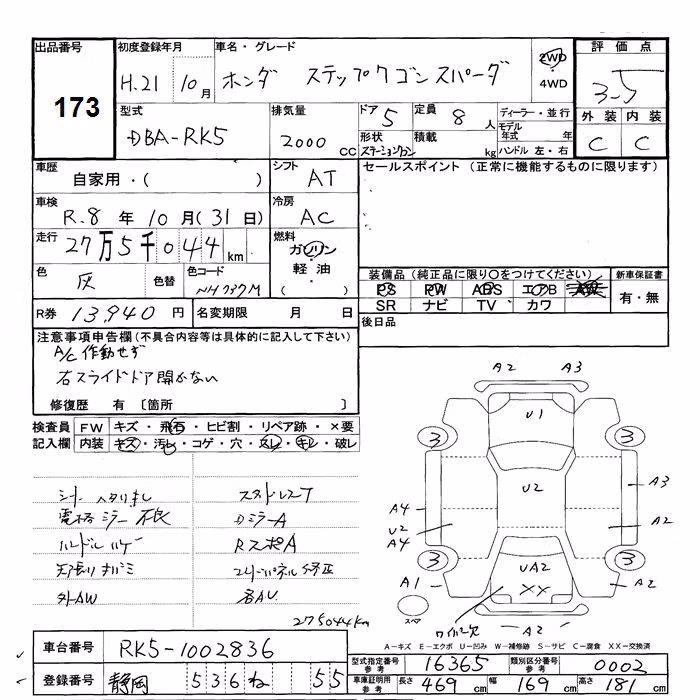 出品番号
173
初度登録年月
H.21 10月
車名・グレード
ホンダ ステップワゴンスパーダ
2WD
・
4WD
評価点
3.5
外装 内装
C C
型式
DBA-RK5
排気量
2000 CC
ドア 5
定員 8 人
形状 ステーションワゴン
積載 kg
ディーラー・並行
モデル年式 年
ハンドル 左・右
車歴
自家用・( )
シフト
AT
セールスポイント (正常に機能するものに限ります)
車検
R.8 年 10 月(31 日)
冷房
AC
走行
27万5千044 km
燃料
ガソリン
・
軽油
( )
色
灰
色替
色コード
NH737M
装備品(純正品に限り○をつけてください)
PS PW ABS エアB AW
SR ナビ TV カワ
新車保証書
有・無
R券 13,940 円
名変期限 月 日
後日品
注意事項申告欄(不具合内容等は具体的に記入して下さい)
A/C 作動せず
右スライドドア開かない
修復歴 有 〔箇所 〕
検査員記入欄
FW キズ・飛石・ヒビ割・リペア跡・×要
内装 キズ・汚レ・コゲ・穴・スレ・キレ・破レ
シート ヘタリ有し
電格ミラー不良
ハンドルハゲ
外AW
スタッドレスT
DミラーA
RスポA
各AU
275044km
A2 A3
U1
3 3
U2
A4
U2
A4
A3
A2
3 3
UA2
XX
A1
A2
スペア
A2
A-キズ E-エクボ U-凹み W-補修跡 S-サビ C-腐食 XX-交換済
車台番号
RK5-1002836
登録番号
静岡 536 ね 55
型式指定番号参考
16365
類別区分番号参考
0002
車庫証明用参考
長さ 469 cm
幅 169 cm
高さ 181 cm